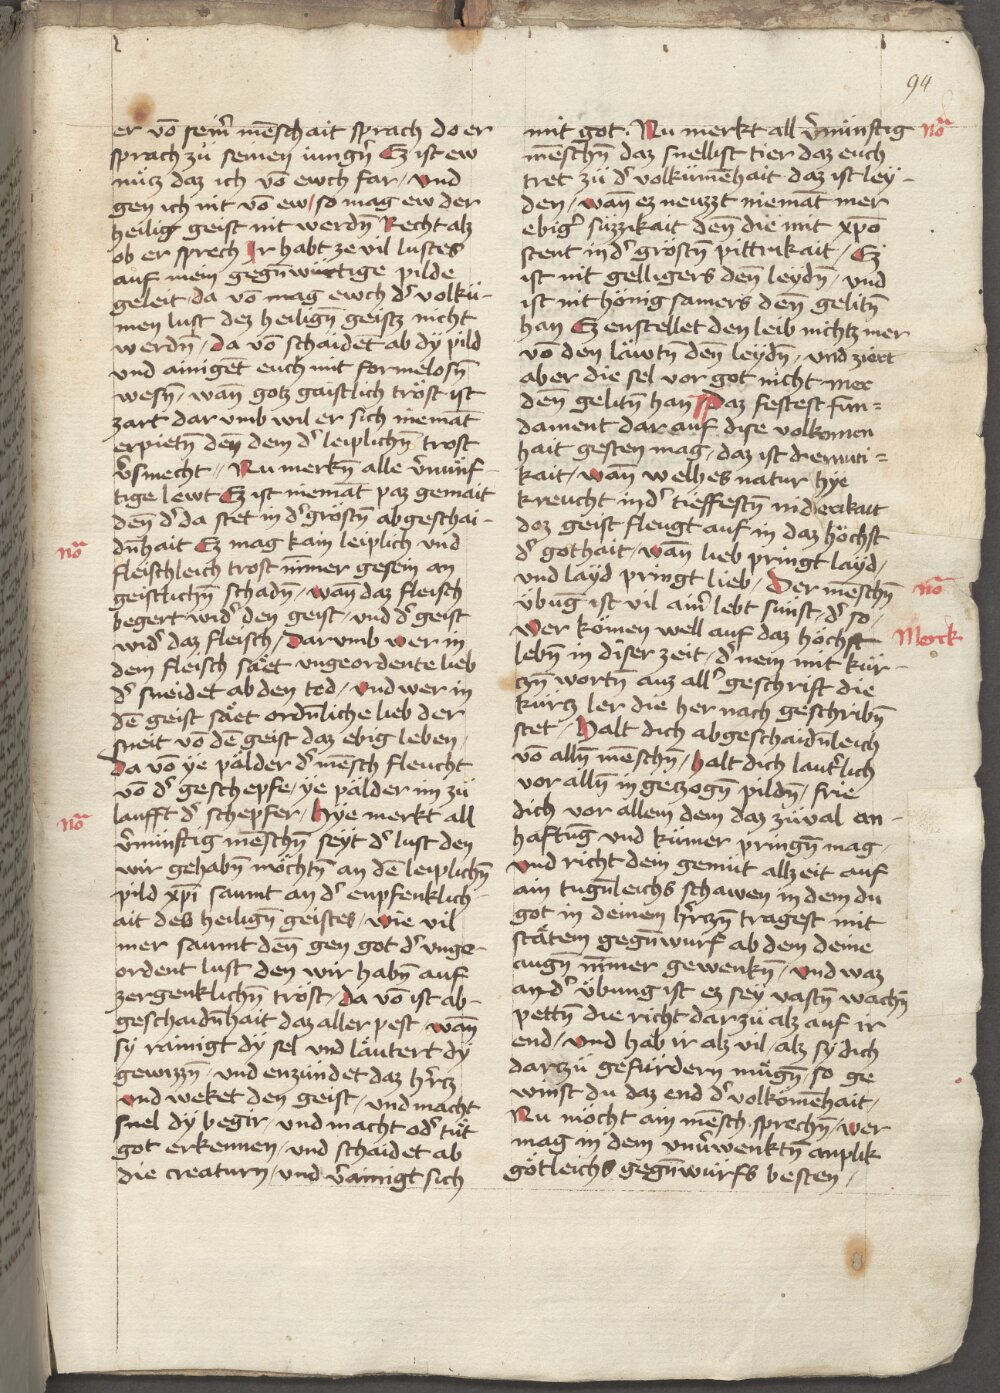 94
er vō seinr̄ mēschait sprach do er
sprach zü seinen iungn̄ Ez ist ew
nücz daz ich vō ewch far / und
gen ich nit vō ew / so mag ew der
heilig geist nit werdn̄ Recht alz
ob er sprech Ir habt ze vil lustes
auf mein gegn̄würtige pilde
geleit / da vō mag ewch d' volkü-
men lust dez heilign̄ geistz nicht
werdn̄ / Da vō schaidet ab dÿ pild
und ainigēt euch mit formelosn̄
wesn̄ / wan̄ gotz gaistlich tröst ist
zart dar umb wil er sich niemāt
erpietn̄ den dem d' leiplichn̄ trost
v̄smecht // Nu merkn̄ alle v̄nünf-
tige lewt Ez ist niemāt paz gemait
den̄ d' da stet in d' gröstn̄ abgeschai-
dn̄hait Ez mag kain leiplich und
fleischleich trost nīmer gesein an
geistlichn̄ schadn̄ / wan̄ daz fleisch
begert wid' den geist / und d' geist
wid' daz fleisch / Dar umb wer in
dem fleisch säet ungeordente lieb
d' sneidet ab den tod / und wer in
dē geist säet ordn̄liche lieb der
sneit vō dē geist daz ebig leben /
Da vō ÿe pälder d' mēsch fleucht
vō d' geschepfe / ÿe pälder im zü
laufft d' schepfer / Hÿe merkt all
v̄nünftig mēschn̄ seÿt d' lust den
wir gehabn̄ möchtn̄ an dē leiplichn̄
pild xp̄i saumt an d' enpfenklich-
ait des heilign̄ geistes / wie vil
mer saumt den̄ gen got d' unge-
ordent lust den wir habn̄ auf
zergenklichn̄ tröst / Da vō ist ab-
geschaidn̄hait daz aller pest / wan̄
sÿ rainigt dÿ sel und läutert dÿ
gewizzn̄ / und enzündet daz h'rcz
und weket den geist / und macht
snel dÿ begir / und macht od' tüt
got erkennen / und schaidet ab
die creaturn / und v̄ainigt sich
nōa
nōa
mit got. Nu merkt all v̄nünftig
mēschn̄ daz snellist tier daz euch
tret zü d' volkümēhait daz ist leÿ-
den / wan̄ ez neuzzt niemāt mer
ebig' süzzikait den̄ die mit xp̄o
stent in d' gröstn̄ pittrikait / Ez
ist nit gelligers den̄ leÿdn̄ / und
ist nit hönig samers den̄ gelitn̄
han Ez enstellet den leib nichtz mer
vō den läwtn̄ den̄ leÿdn̄ / und ziert
aber die sel vor got nicht mer
den̄ gelitn̄ han Daz festest fun=
dament dar auf dise volkomen
hait gesten mag / daz ist diemuti=
kait / wan̄ welhes natur hÿe
kreucht in d' tieffestn̄ niderikait
dez geist fleugt auf in daz höchst
d' gothait / wan̄ lieb pringt laÿd /
und laÿd pringt lieb / Der mēschn̄
übung ist vil ain' lebt sünst / d' so /
Wer kömen well auf daz höchst
lebn̄ in diser zeit / d' nem mit kür-
czn̄ wortn̄ auz all' geschrift die
kürcz ler die her nach geschribn̄
stet / Halt dich abgeschaidn̄leich
vō alln̄ mēschn̄ / Halt dich laut'lich
vor alln̄ in geczogn̄ pildn̄ / frie
dich vor allem dem daz züval an-
haftug und kümer pringn̄ mag /
Und richt dein gemüt allzeit auf
ain tugn̄leichs schawen in dem du
got in deinem h'rczn̄ tragest mit
stätem gegn̄wurf ab dem deine
augn̄ nīmer gewenkn̄ / Und waz
an d' übung ist ez seÿ vastn̄ wachn̄
pettn̄ die richt dar zü alz auf ir
end / Und hab ir alz vil / alz sÿ dich
darczü gefürdern mügn̄ / so ge
winst du daz end d' volkömēhait /
Nu möcht ain mēsch sprechn̄ / wer
mag in dem unv̄wenktn̄ anplik
götleichs gegn̄würfs besten /
nōa
nōa
Merck